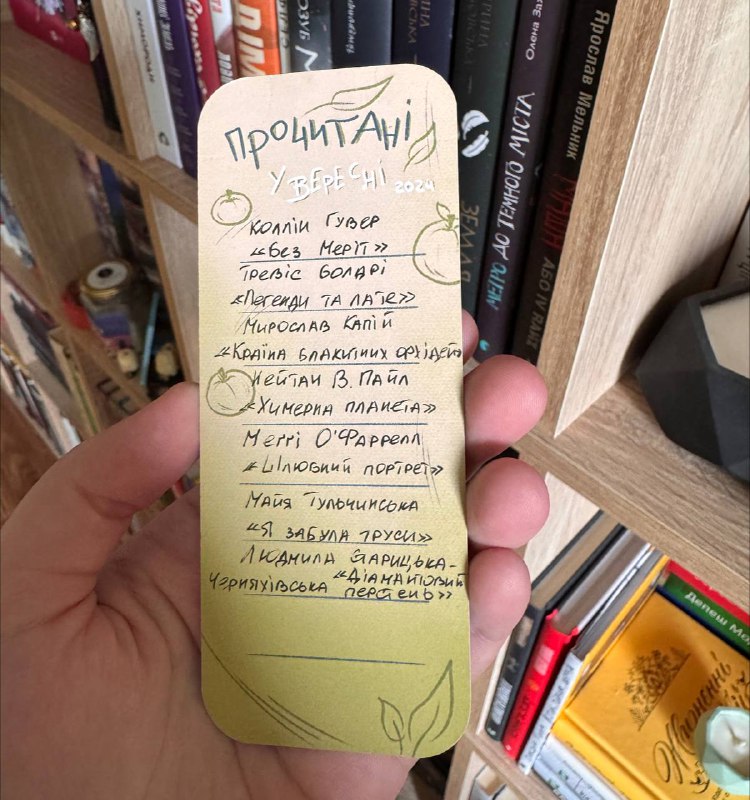 ПРОЧИТАНІ
У ВЕРЕСНІ 2024
Коллін Гувер
«Без Меріт»
Тревіс Болдрі
«Легенди та лате»
Мирослав Капій
«Країна блакитних орхідей»
Нейтан В. Пайл
«Химерна планета»
Меґґі О'Фаррелл
«Шлюбний портрет»
Майя Тульчинська
«Я забула труси»
Людмила Старицька-
Черняхівська «Діамантовий
перстень»
Олена Зах
МЕТРО ДО ТЕМНОГО МІСТА
Ярослав Мельник
МАША АБО IV РАЙХ
ЗЕМЛЯ
Депеш Мо